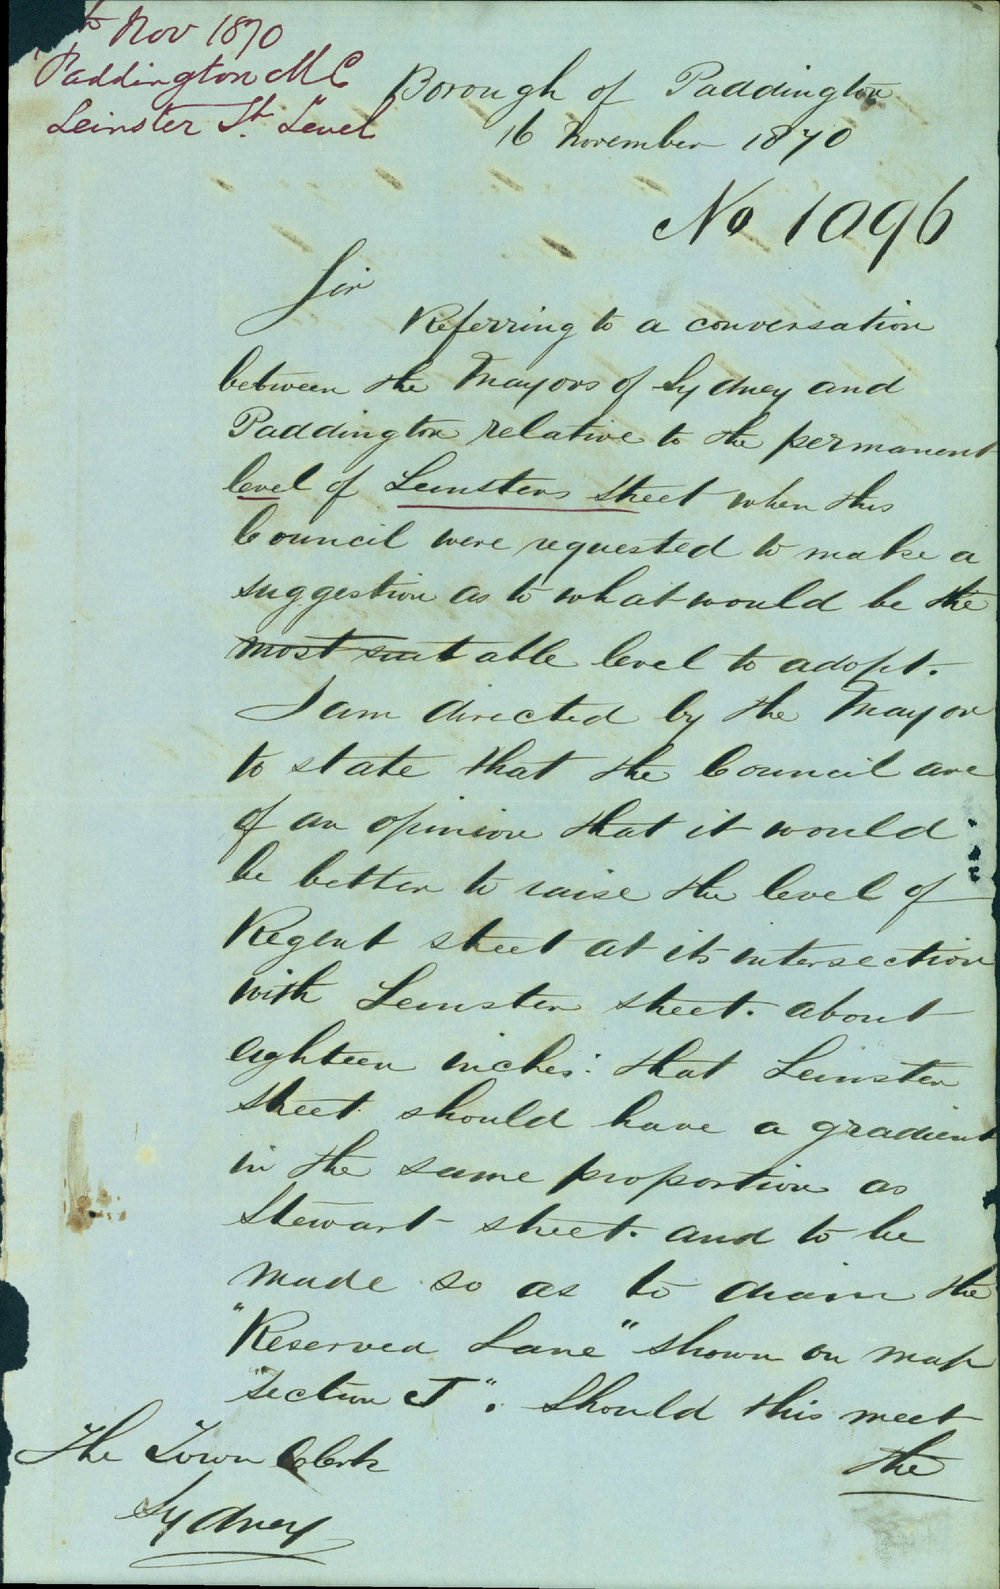 Nov 1870
Paddington M C
Leinster St. Level
Borough of Paddington
16 November 1870
No 1096
Sir
Referring to a conversation
between the Mayors of Sydney and
Paddington relative to the permanent
level of Leinsters Street when this
Council were requested to make a
suggestion as to what would be the
most suitable level to adopt.
I am directed by the Mayor
to state that the Council are
of an opinion that it would
be better to raise the level of
Regent street at its intersection
with Leinster street. about
eighteen inches: that Leinster
Street should have a gradient
in the same proportion as
Stewart street. and to be
made so as to drain the
"Reserved Lane" shown on map
"Section J". Should this meet
the
The Town Clerk
Sydney